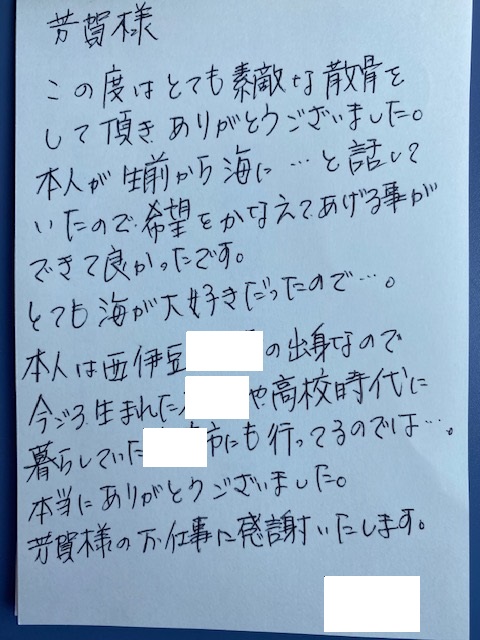 芳賀様
この度はとても素敵な散骨を
して頂きありがとうございました。
本人が生前から海に…と話して
いたので希望をかなえてあげる事が
できて良かったです。
とても海が大好きだったので…。
本人は西伊豆の出身なので
今ごろ生まれたや高校時代に
暮らしていた市にも行ってるのでは…。
本当にありがとうございました。
芳賀様のお仕事に感謝いたします。